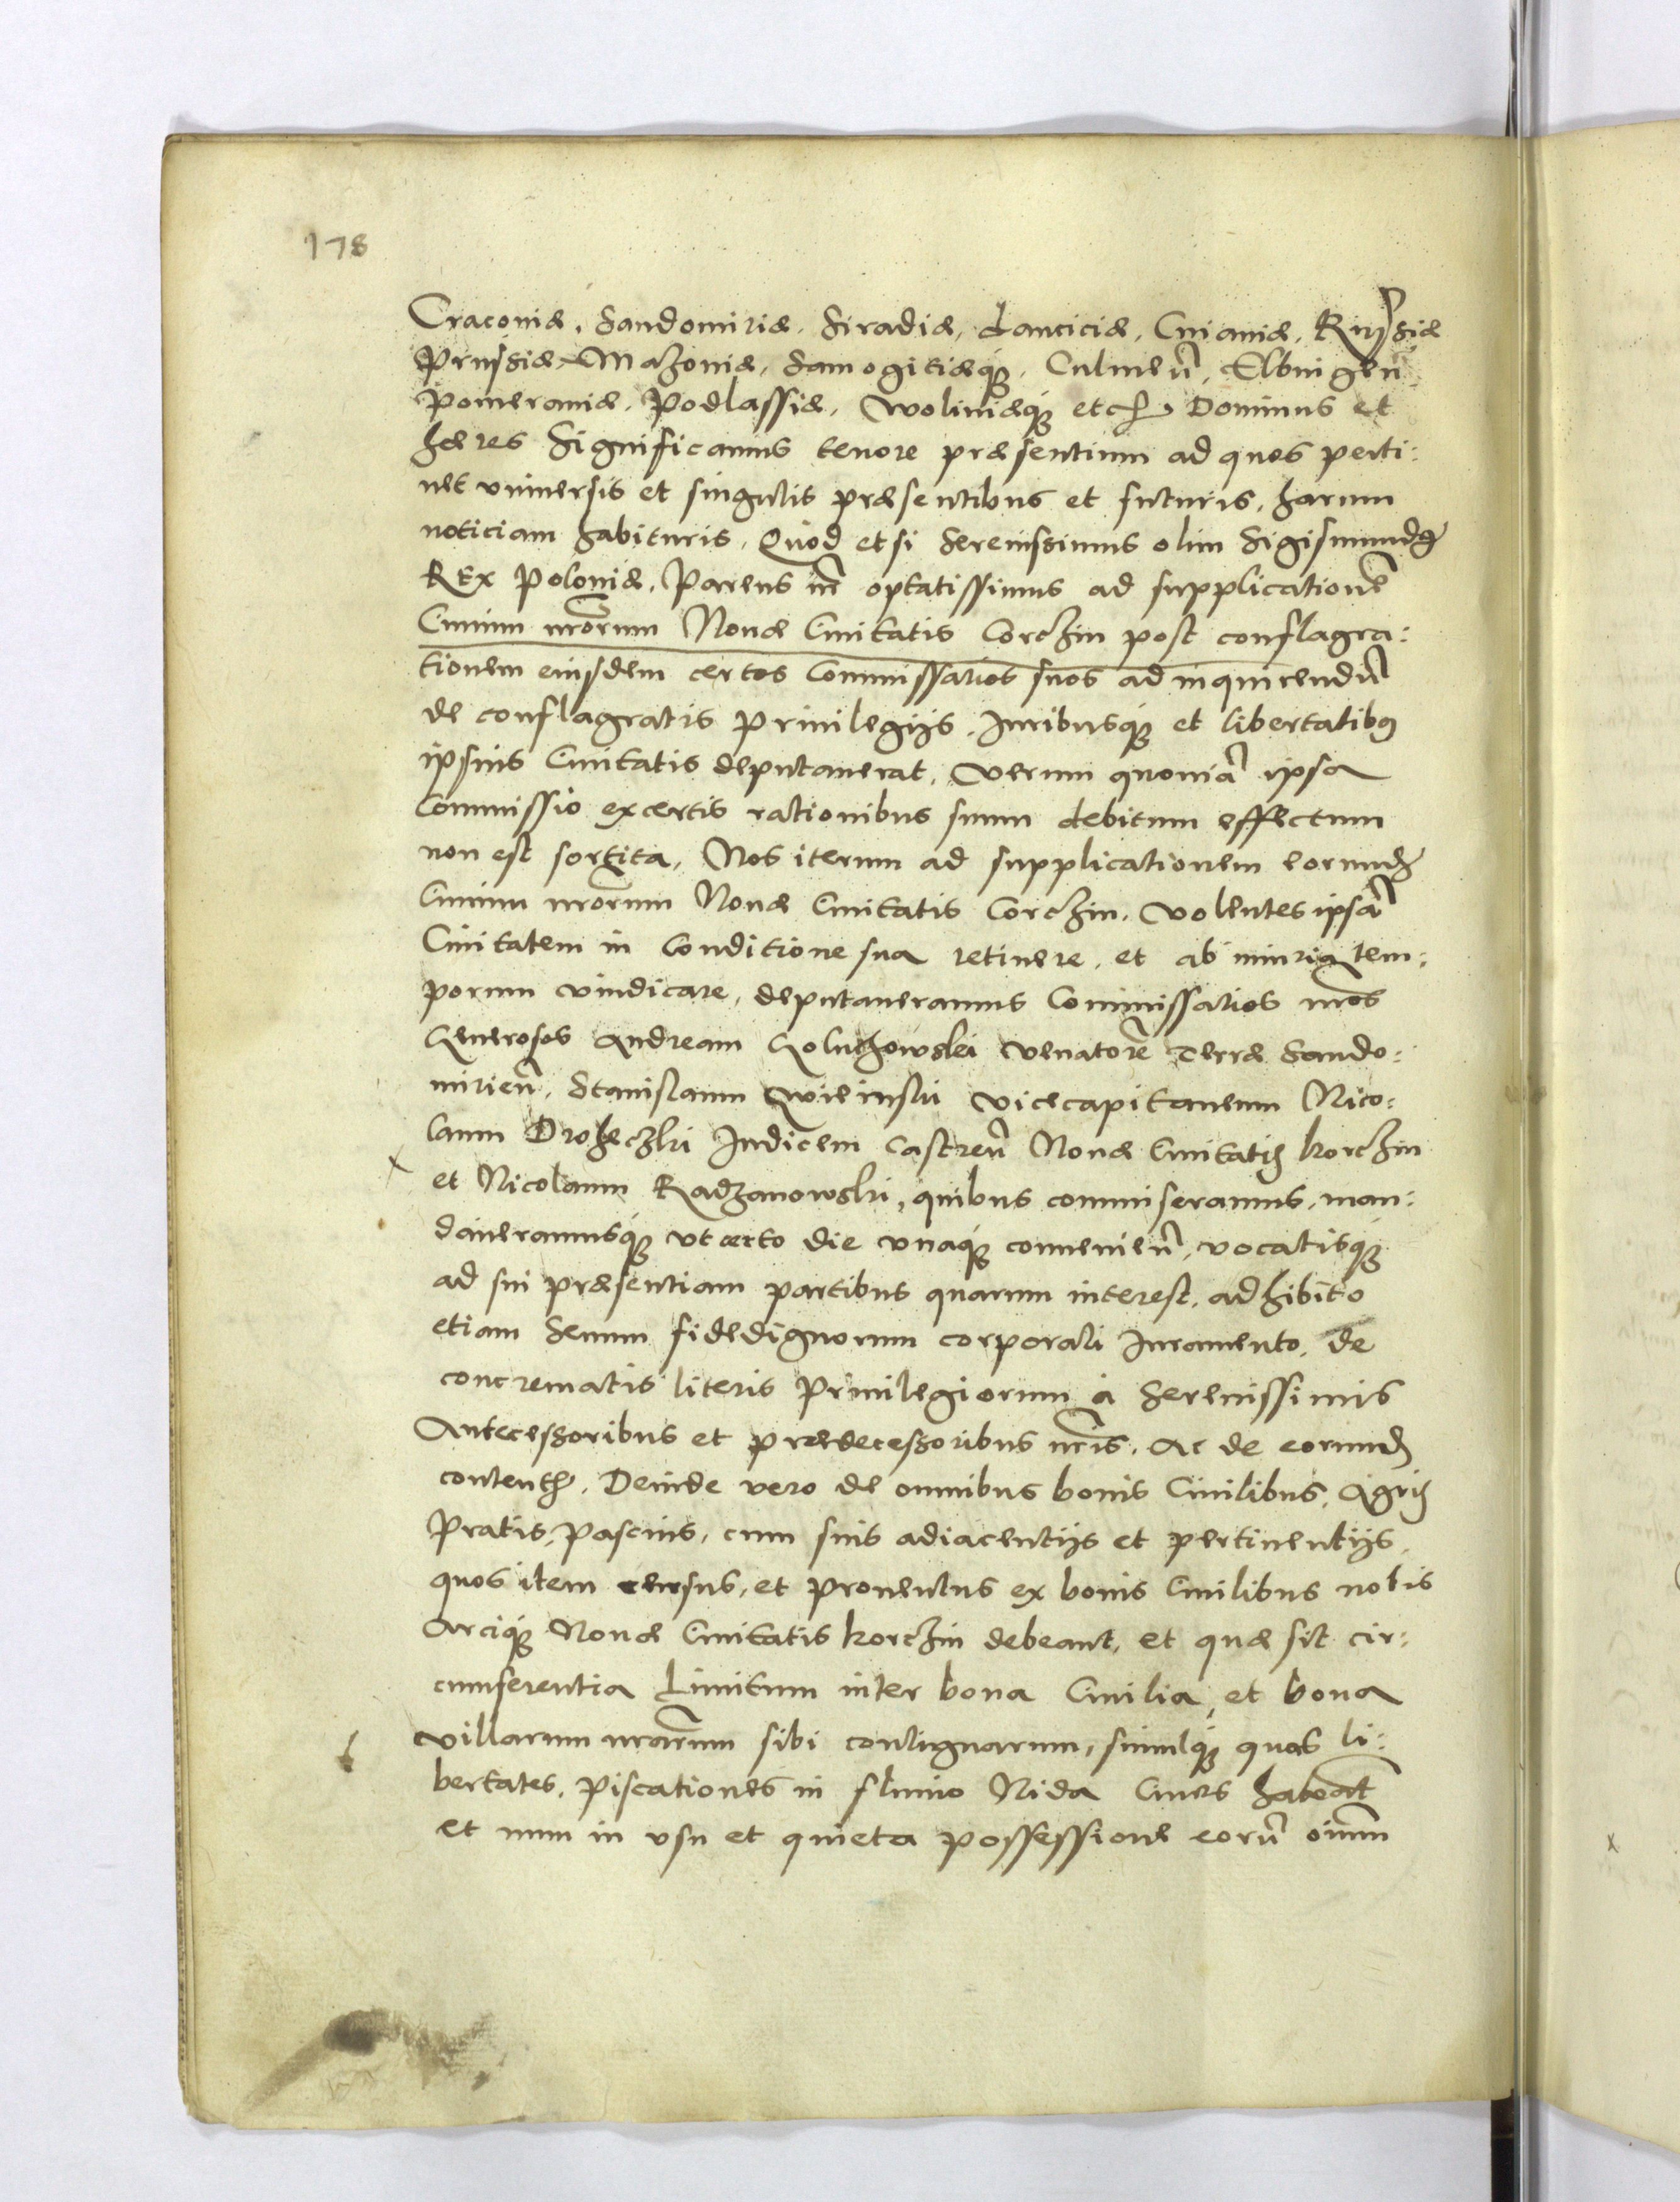 178
Cracouiæ, Sandomiriæ, Siradiæ, Lanciciæ, Cuiauiæ, Russiæ
Prussiæ, Mazouiæ, Samogitiæq3, Culmen̄, Elbingen̄
Pomeraniæ, Podlassiæ, Woliniæq3 etc. Dominus et
hæres Significamus tenore præsentium ad quos perti:
net vniuersis et singulis præsentibus et futuris, harum
noticiam habituris, Quod etsi Serenissimus olim Sigismundꝰ
REx Poloniæ, Parens nr̄ optatissimus ad supplicationē
Ciuium nr̄orum Nouæ Ciuitatis Corczin post conflagra:
tionem eiusdem certos Commissarios suos ad inquirendū
de conflagratis Priuilegijs, Iuribusq3 et libertatibꝰ
ipsius Ciuitatis deputauerat, Verum quoniā ipsa
Commissio ex certis rationibus suum debitum effectum
non est sortita, Nos iterum ad supplicationem eorund̃
Ciuium nr̄orum Nouæ Ciuitatis Corczin, Volentes ipsā
Ciuitatem in Conditione sua retinere, et ab iniuria tem:
porum vindicare, deputaueramus Commissarios nr̄os
Generosos Andream Goluchowski Venatorē Terræ Sando:
mirien̄, Stanislaum Wieinski Vicecapitaneum Nico:
laum Droheczki Iudicem Castren̄ Nouæ Ciuitatis Korczin
et Nicolaum Radzanowski, quibus commiseramus, man:
daueramusq3 vt certo die vnaq3 conuenien̄, vocatisq3
ad sui præsentiam partibus quarum interest, adhibito
etiam Senum fidedignorum corporali Iuramento, de
concrematis literis Priuilegiorum à Serenissimis
Antecessoribus et prædecessoribus nr̄is, Ac de eorund̃
contentis, Deinde vero de omnibus bonis Ciuilibus, Agris
Pratis, Pascuis, cum suis adiacentijs et pertinentijs,
quos item census, et prouentus ex bonis Ciuilibus nobis
Arciq3 Nouæ Ciuitatis Korczin debeant, et quæ sit cir:
cumferentia Limitum inter bona Ciuilia, et bona
Villarum nr̄arum sibi contiguarum, simulq3 quas li:
bertates, Piscationes in fluuio Nida Ciues habeāt
et num in vsu et quieta possessione eorū oīum